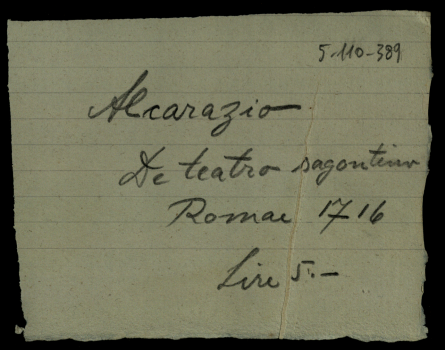 5-110-389
Alcarazio
De teatro sagontino
Romae 1716
Lire 5.-